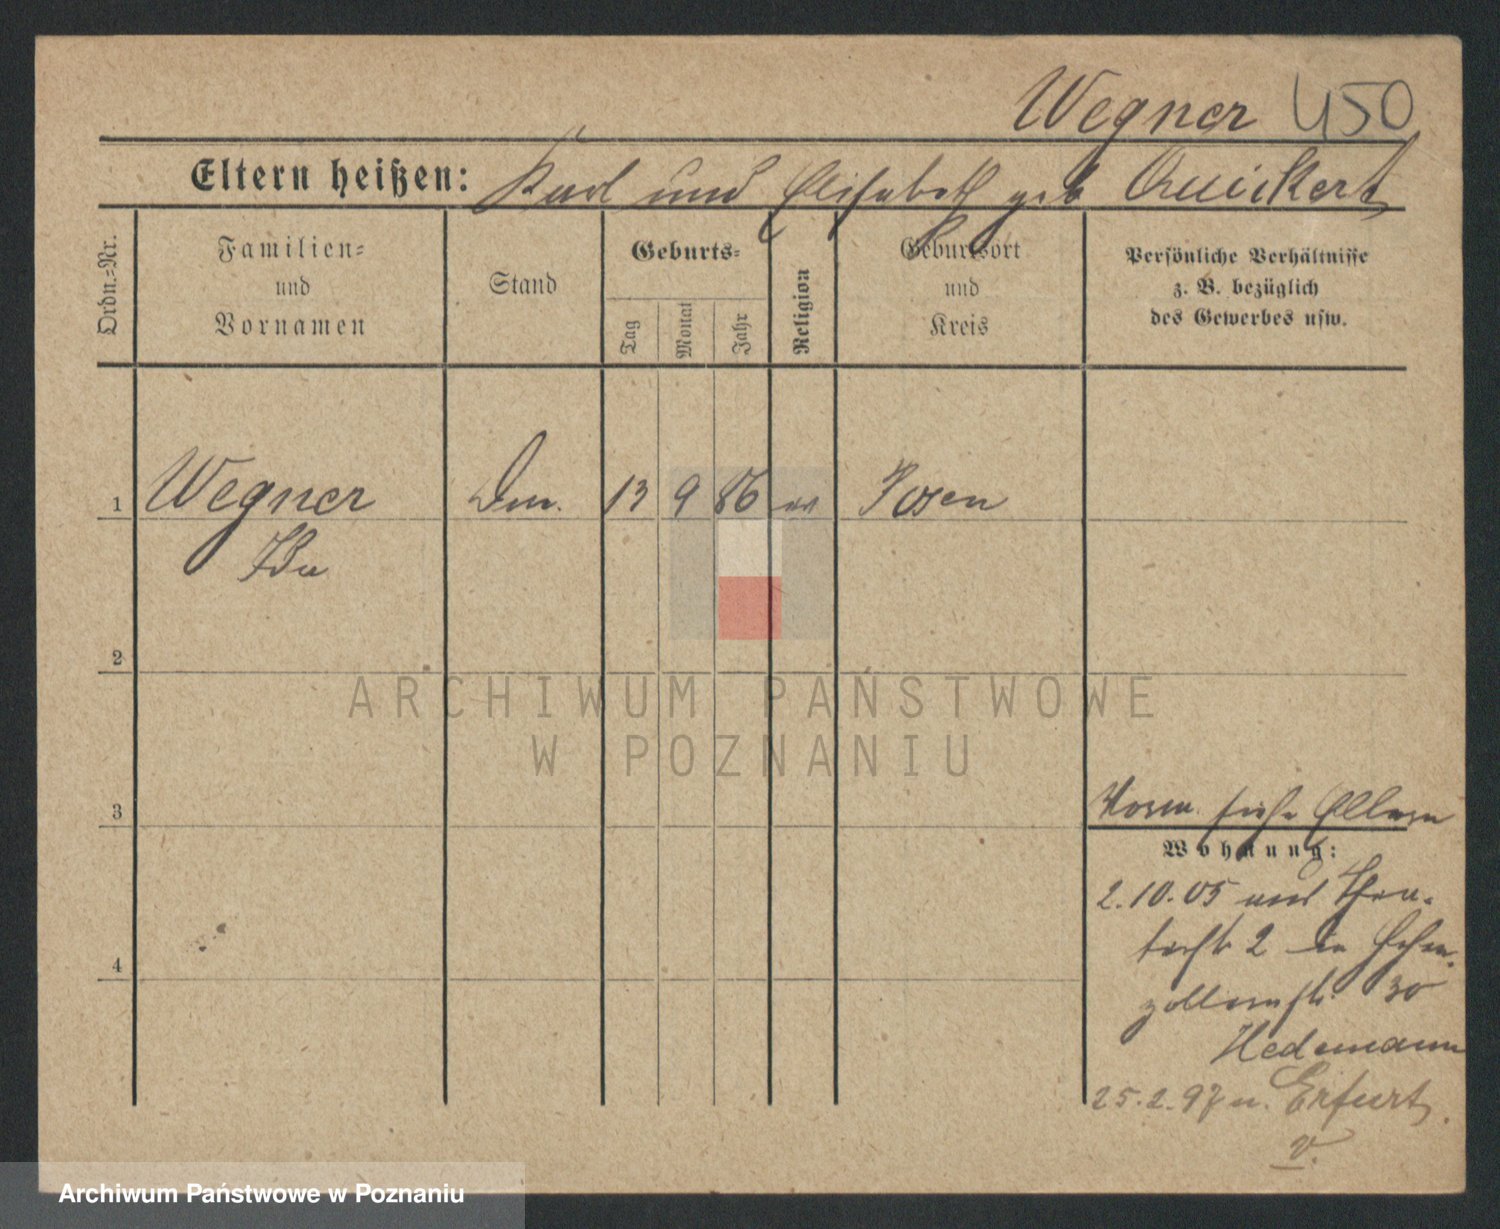 Wegner 450
Eltern heißen: Karl und Elisabeth geb Quickert
Ordn.-Nr.
Familien-
und
Vornamen
Stand
Geburts-
Tag
Monat
Jahr
Religion
Geburtsort
und
Kreis
Persönliche Verhältnisse
z. B. bezüglich
des Gewerbes usw.
1 Wegner 13 9 86 Posen
Ida
2
ARCHIWUM PAŃSTWOWE
W POZNANIU
3
siehe Eltern
Wohnung:
2.10.05
2 Hohen-
zollernstr. 30
Hedemann
25.2.97 n. Erfurt.
v.
4
Archiwum Państwowe w Poznaniu